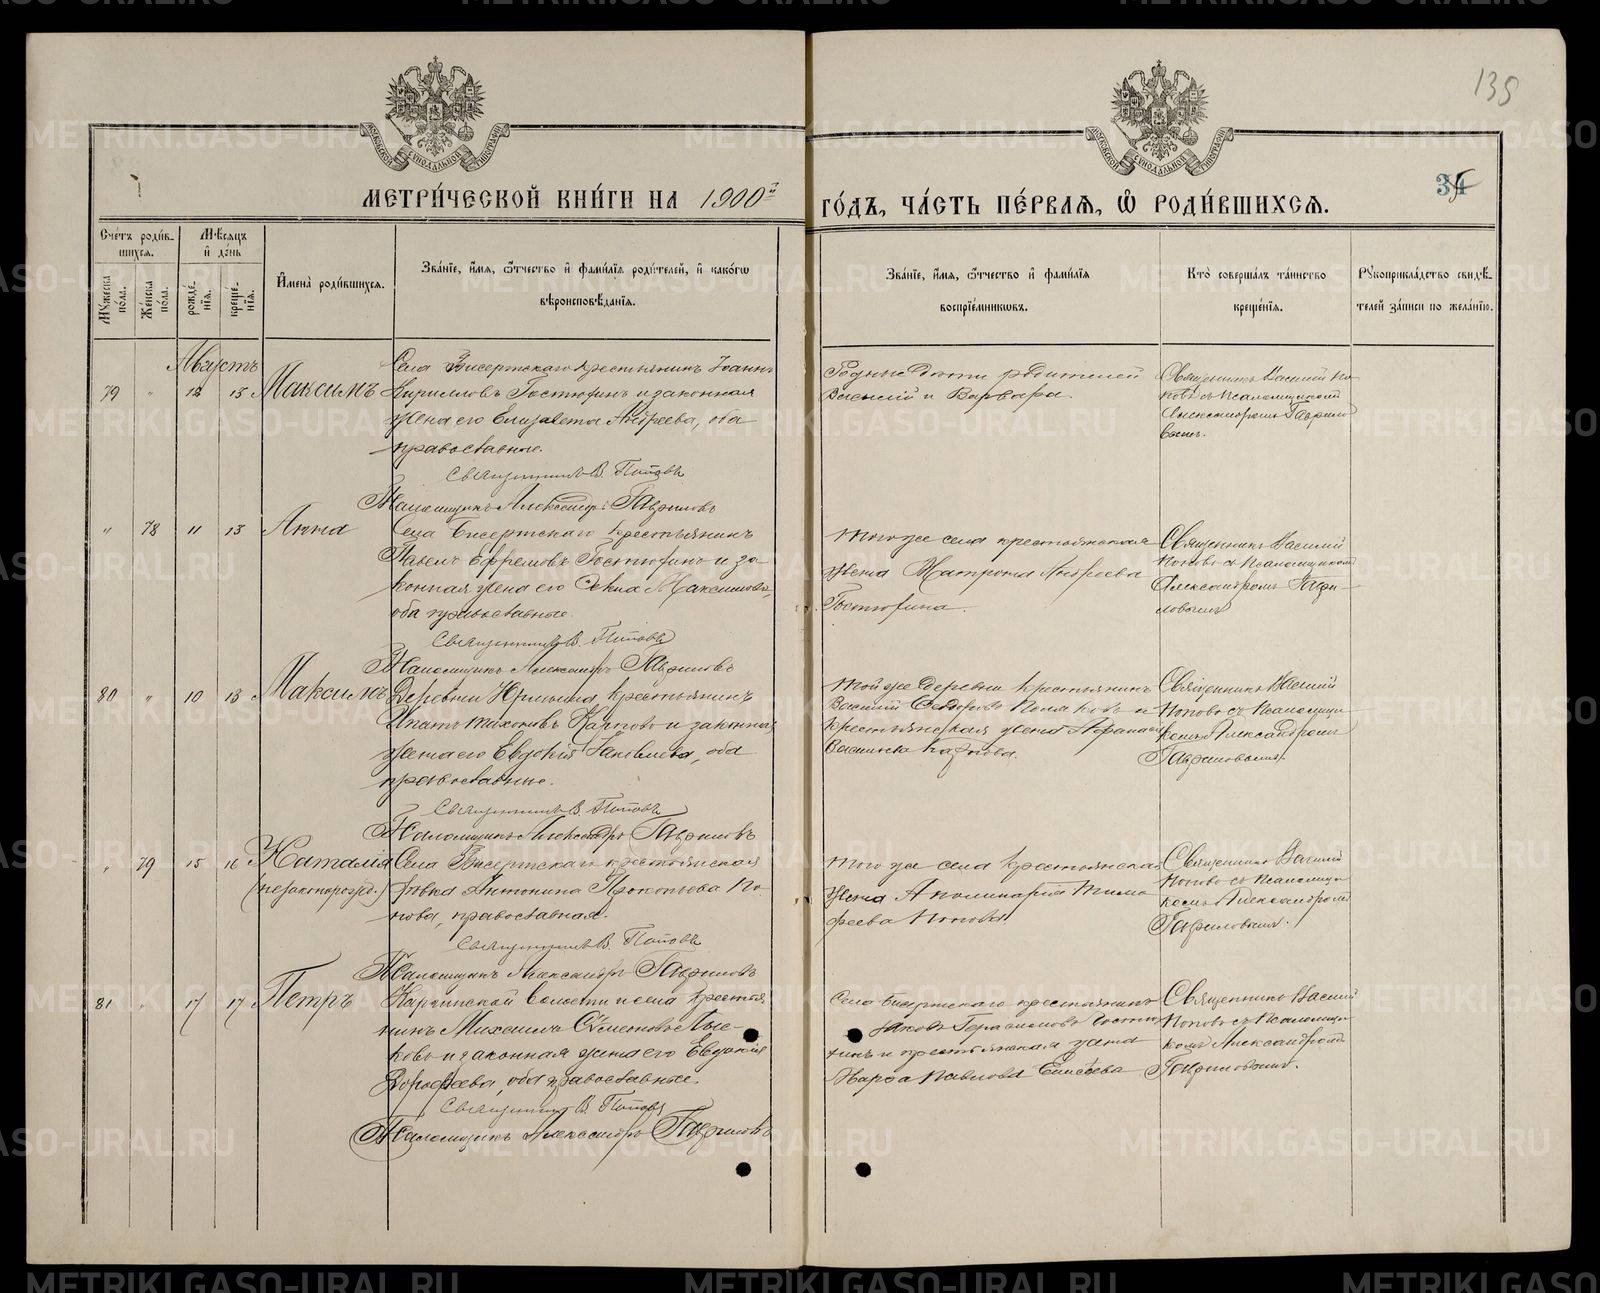 135
МЕТРИ́ЧЕСКОЙ КНИ́ГИ НА 1900й
ГО́ДЪ, ЧА́СТЬ ПЕ́РВАѦ, Ѡ҆ РОДИ́ВШИХСѦ.
34
Сче́тъ роди́в-
шихсѧ.
Мꙋ́жеска по́ла.
Же́нска по́ла.
Мѣ́сѧцъ и҆ де́нь
рожде́нїѧ.
креще́нїѧ.
И҆мена̀ роди́вшихсѧ.
Зва́нїе, и҆́мѧ, ѻ҆́тчество и҆ фами́лїѧ роди́телей, и҆ како́гѡ
вѣроисповѣ́данїѧ.
Зва́нїе, и҆́мѧ, ѻ҆́тчество и҆ фами́лїѧ
воспрїе́мникѡвъ.
Кто̀ соверша́лъ та́инство
креще́нїѧ.
Рꙋкоприкла́дство свидѣ́-
телей за́писи по жела́нїю.
Августъ
79 " 12 13 Максимъ
Села Бисертскаго крестьянинъ Іоаннъ
Кирилловъ Гостюхинъ и законная
жена его Елизавета Андреева, оба
православные.
Священникъ В. Поповъ
Псаломщикъ Александръ Гавриловъ
Родные дети родителей
Василій и Варвара.
Священникъ Василій По-
повъ съ псаломщикомъ
Александромъ Гаврило-
вымъ.
" 78 11 13 Анна
Села Бисертскаго крестьянинъ
Павелъ Ефремовъ Гостюхинъ и за-
конная жена его Ѳекла Максимова,
оба православные.
Священникъ В. Поповъ
Псаломщикъ Александръ Гавриловъ
Того же села крестьянская
жена Матрона Андреева
Гостюхина.
Священникъ Василій
Поповъ съ псаломщикомъ
Александромъ Гаври-
ловымъ
80 " 10 13 Максимъ
Деревни крестьянинъ
Игнатъ Тихоновъ Карповъ и законная
жена его Евдокія Яковлева, оба
православные.
Священникъ В. Поповъ
Псаломщикъ Александръ Гавриловъ
Той же деревни крестьянинъ
Василій Сидоровъ и
крестьянская жена
Карпова.
Священникъ Василій
Поповъ съ псаломщи-
комъ Александромъ
Гавриловымъ.
" 79 15 16 Наталія
(незаконорожд.)
Села Бисертскаго крестьянская
девка Антонина Прокопьева По-
пова, православная.
Священникъ В. Поповъ
Псаломщикъ Александръ Гавриловъ
Того же села крестьянская
жена Аполинарія Тимо-
феева Попова
Священникъ Василій
Поповъ съ псаломщи-
комъ Александромъ
Гавриловымъ.
81 " 17 17 Петръ
волости и села крестья-
нинъ Михаилъ Лы-
ковъ и законная жена его Евдокія
Дорофеева, оба православные.
Священникъ В. Поповъ
Псаломщикъ Александръ Гавриловъ
Села Бисертскаго крестьянинъ
Яковъ Герасимовъ Гостю-
хинъ и крестьянская жена
Марфа Павлова
Священникъ Василій
Поповъ съ псаломщи-
комъ Александромъ
Гавриловымъ.
METRIKI.GASO-URAL.RU